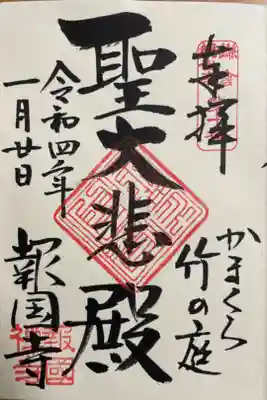 奉拝
かまくら
竹の庭
聖大悲殿
令和四年
一月廿日
報国寺